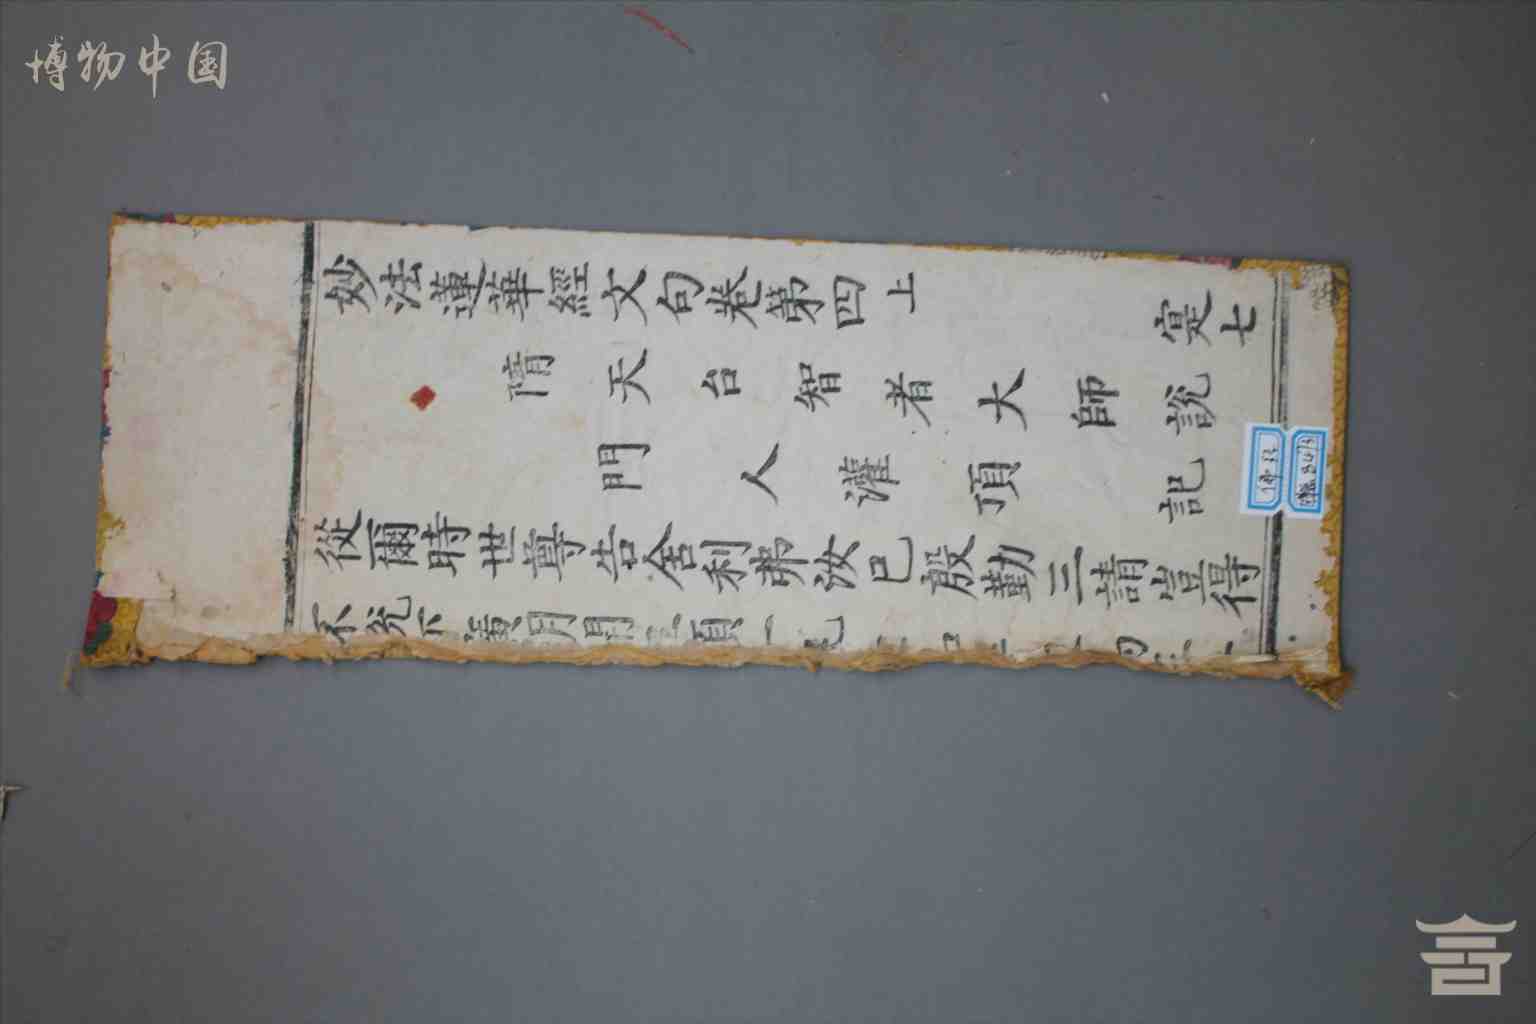 博物中国
妙法蓮華經文句卷第四上 寔七
隋天台智者大師說
門人灌頂記
從爾時世尊告舍利弗汝已殷勤三請豈得
不